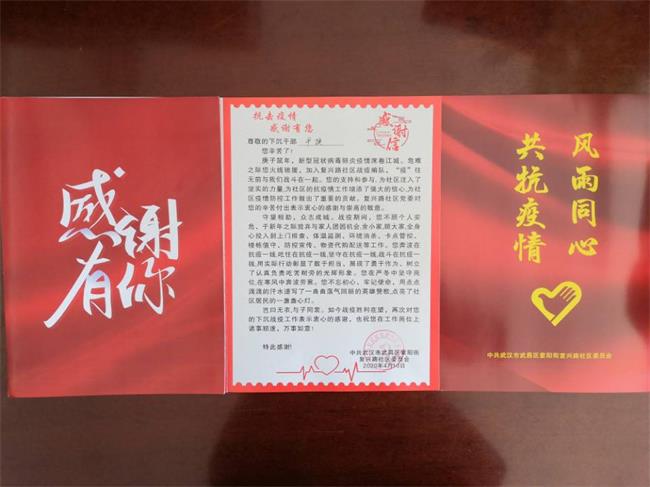 感谢
有你
抗击疫情
感谢有您
感谢信
尊敬的下沉干部
您辛苦了!
庚子鼠年,新型冠状病毒肺炎疫情席卷江城。危难
之际您火线驰援,加入复兴路社区战疫编队,“疫”往
无前与我们战斗在一起。您的支持和参与,为社区注入了
坚实的力量,为社区的抗疫情工作增添了强大的信心,为社
区疫情防控工作做出了重要的贡献。复兴路社区党委对
您的辛苦付出表示衷心的感谢与崇高的敬意。
守望相助,众志成城。战疫期间,您不顾个人安
危,于新年之际放弃与家人团圆机会,舍小家,顾大家,全身
心投入到上门排查、体温监测、环境消杀、卡点管控、
楼栋值守、防控宣传、物资代购配送等工作。您奔波在
抗疫一线,吃住在抗疫一线,坚守在抗疫一线,战斗在抗疫一
线,用实际行动彰显了敢于担当、展现了勇于作为、树立
了认真负责吃苦耐劳的光辉形象。您在严冬中坚守岗
位,在寒风中奔波劳累。您不忘初心、牢记使命,用点点
滴滴的汗水谱写了一曲曲荡气回肠的英雄赞歌,点亮了社
区居民的一盏盏心灯。
岂曰无衣,与子同裳。如今战疫胜利在望,再次对您
的下沉战疫工作表示衷心的感谢,也祝您在工作岗位上
诸事顺遂,万事如意!
特此感谢!
中共武汉市武昌区紫阳街
复兴路社区委员会
2020年4月10日
风雨同心
共抗疫情
中共武汉市武昌区紫阳街复兴路社区委员会